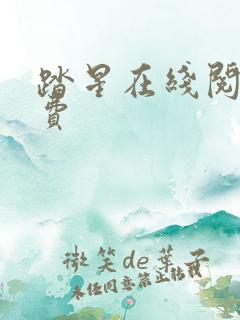 踏星在线阅
费
微笑de葉子
未经同意禁止转载